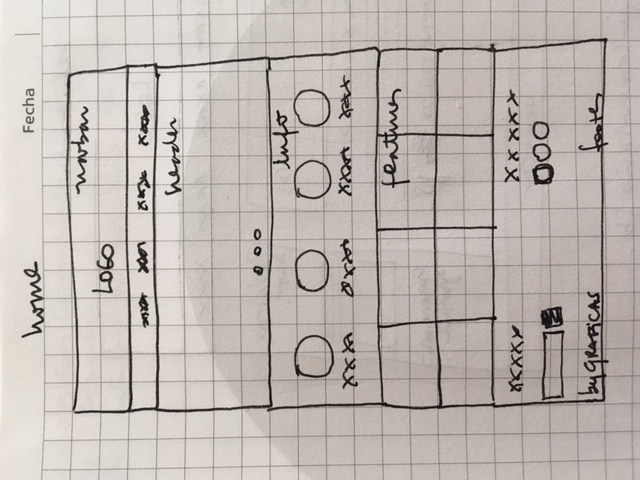 home
Fecha
navbar
LOGO
xxxx xxxx xxxx xxxx
header
info
xxxx xxxx xxxx xxxx
features
xxxxx xxxxx
by GRAFICAS
footer